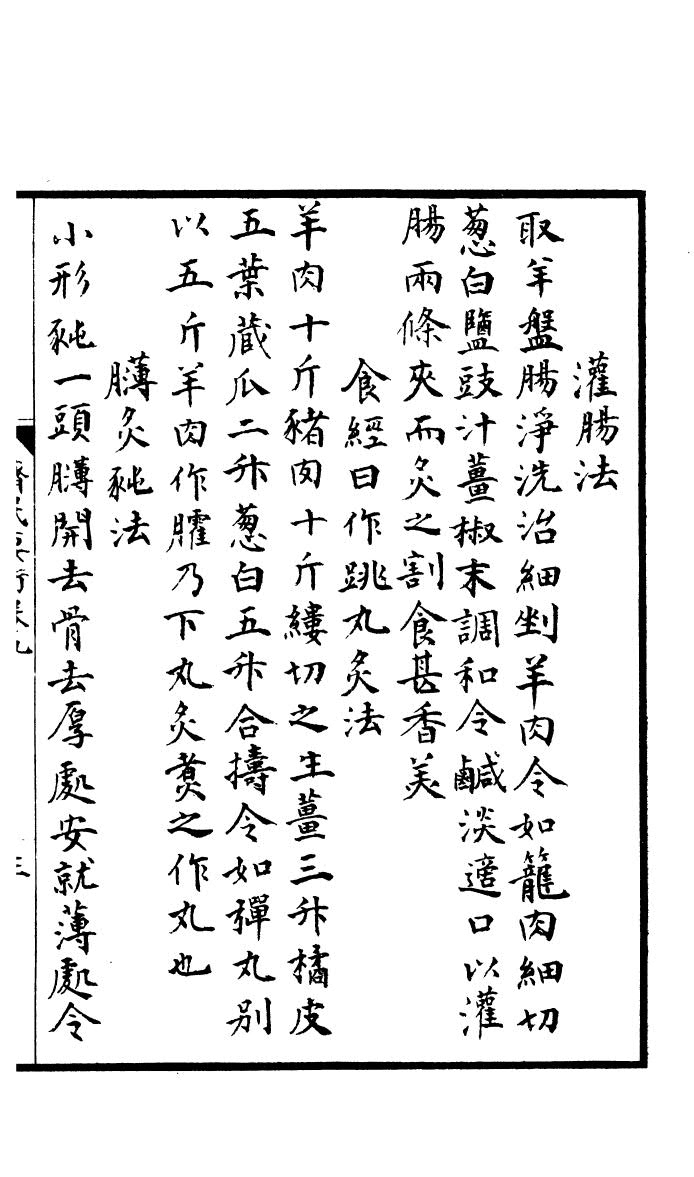 灌腸法
取羊盤腸淨洗治細剉羊肉令如籠肉細切
葱白鹽豉汁薑椒末調和令鹹淡適口以灌
腸兩條夾而炙之割食甚香美
食經曰作跳丸炙法
羊肉十斤豬肉十斤縷切之生薑三升橘皮
五葉蔵瓜二升葱白五升合擣令如彈丸别
以五斤羊肉作臛乃下丸炙煑之作丸也
膊炙豘法
小形豘一頭膊開去骨去厚處安就薄處令